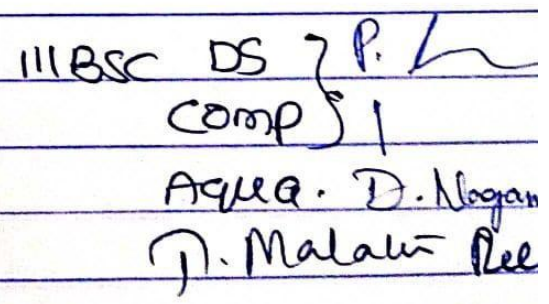 III BSC DS } P.
COMP }
Aqua. D. Nagam
Malathi Ree